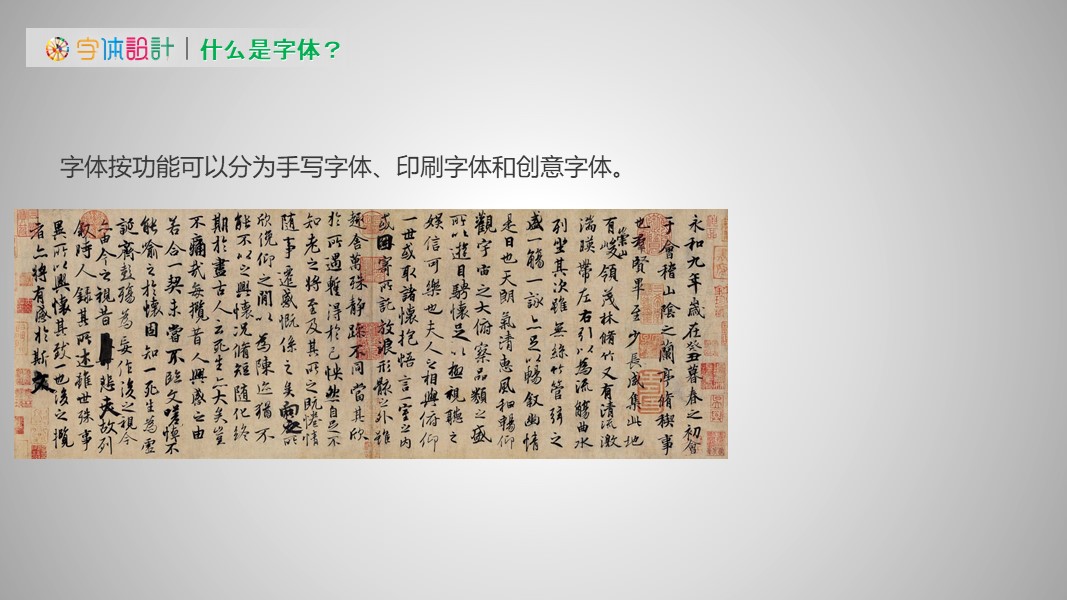 字体設計 | 什么是字体？
字体按功能可以分为手写字体、印刷字体和创意字体。
永和九年歲在癸丑暮春之初會
于會稽山陰之蘭亭脩稧事
也羣賢畢至少長咸集此地
有崇山峻領茂林脩竹又有清流激
湍暎帶左右引以為流觴曲水
列坐其次雖無絲竹管弦之
盛一觴一詠亦足以暢敘幽情
是日也天朗氣清惠風和暢仰
觀宇宙之大俯察品類之盛
所以遊目騁懷足以極視聽之
娛信可樂也夫人之相與俯仰
一世或取諸懷抱悟言一室之內
或因寄所託放浪形骸之外雖
趣舍萬殊靜躁不同當其欣
於所遇暫得於己怏然自足不
知老之將至及其所之既惓情
隨事遷感慨係之矣向之所
欣俛仰之閒以為陳迹猶不
能不以之興懷況脩短隨化終
期於盡古人云死生亦大矣豈
不痛哉每攬昔人興感之由
若合一契未嘗不臨文嗟悼不
能喻之於懷固知一死生為虛
誕齊彭殤為妄作後之視今
亦由今之視昔悲夫故列
敘時人錄其所述雖世殊事
異所以興懷其致一也後之攬
者亦將有感於斯文